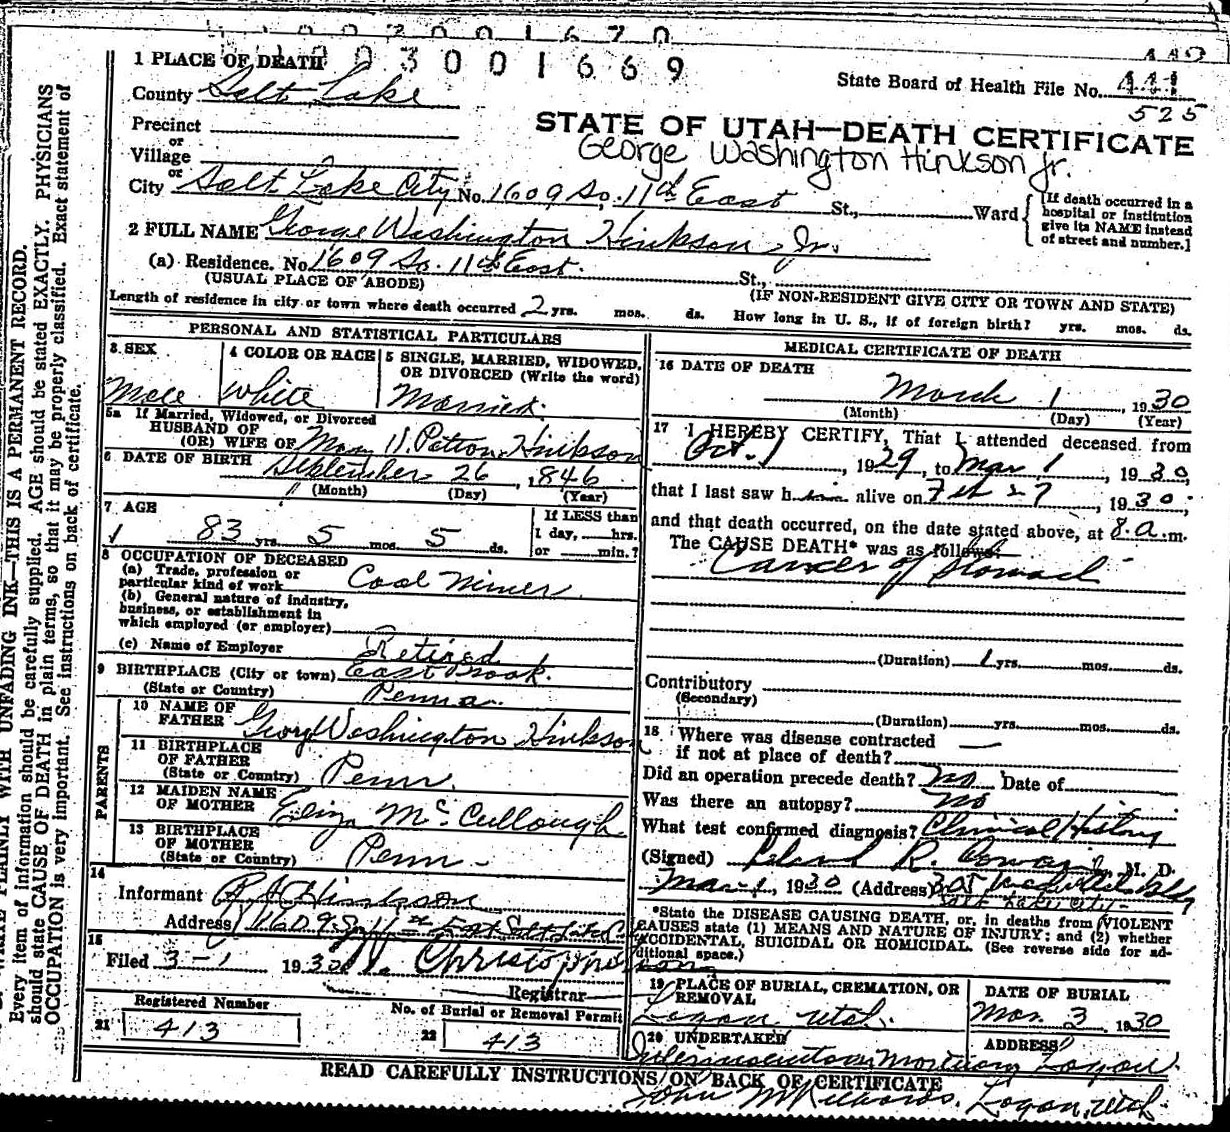 003001669
1 PLACE OF DEATH
State Board of Health File No. 441
525
County Salt Lake
Precinct
STATE OF UTAH—DEATH CERTIFICATE
George Washington Hinkson Jr.
or
Village
or
City Salt Lake City No. 1609 So. 11th East St., Ward
[If death occurred in a hospital or institution give its NAME instead of street and number.]
2 FULL NAME George Washington Hinkson Jr.
(a) Residence. No. 1609 So. 11th East. St.,
(USUAL PLACE OF ABODE) (IF NON-RESIDENT GIVE CITY OR TOWN AND STATE)
Length of residence in city or town where death occurred 2 yrs. mos. ds. How long in U. S., if of foreign birth? yrs. mos. ds.
PERSONAL AND STATISTICAL PARTICULARS
3 SEX
Male
4 COLOR OR RACE
White
5 SINGLE, MARRIED, WIDOWED, OR DIVORCED (Write the word)
Married.
5a If Married, Widowed, or Divorced
HUSBAND OF
(OR) WIFE OF Hinkson
6 DATE OF BIRTH September 26, 1846
(Month) (Day) (Year)
7 AGE
83 yrs. 5 mos. 5 ds.
If LESS than
1 day, hrs.
or min.?
8 OCCUPATION OF DECEASED
(a) Trade, profession or
particular kind of work Coal Miner
(b) General nature of industry,
business, or establishment in
which employed (or employer)
(c) Name of Employer Retired
9 BIRTHPLACE (City or town) East Brook.
(State or Country) Penna.
PARENTS
10 NAME OF
FATHER George Washington Hinkson
11 BIRTHPLACE
OF FATHER
(State or Country) Penn.
12 MAIDEN NAME
OF MOTHER Eliza McCullough
13 BIRTHPLACE
OF MOTHER
(State or Country) Penn -
14
Informant Hinkson
Address 1609 So. 11th East Salt Lake C
15
Filed 3-1 1930
Registrar
Registered Number
21 413
No. of Burial or Removal Permit
22 413
MEDICAL CERTIFICATE OF DEATH
16 DATE OF DEATH
March 1, 1930
(Month) (Day) (Year)
17 I HEREBY CERTIFY, That I attended deceased from
Oct. 1, 1929, to Mar 1 1930,
that I last saw him alive on Feb 27, 1930;
and that death occurred, on the date stated above, at 8 a.m.
The CAUSE DEATH* was as follows:
Cancer of Stomach
(Duration) 1 yrs. mos. ds.
Contributory
(Secondary)
(Duration) yrs. mos. ds.
18 Where was disease contracted
if not at place of death? —
Did an operation precede death? No Date of
Was there an autopsy? no
What test confirmed diagnosis? Clinical History
(Signed) Leland R. Cowan, M. D.
Mar 1, 1930 (Address) 305
Salt Lake City
*State the DISEASE CAUSING DEATH, or, in deaths from VIOLENT
CAUSES state (1) MEANS AND NATURE OF INJURY; and (2) whether
ACCIDENTAL, SUICIDAL OR HOMICIDAL. (See reverse side for ad-
ditional space.)
19 PLACE OF BURIAL, CREMATION, OR
REMOVAL
Logan, Utah.
DATE OF BURIAL
Mar. 3, 1930
20 UNDERTAKER
Mortuary
ADDRESS
Logan.
READ CAREFULLY INSTRUCTIONS ON BACK OF CERTIFICATE
John Logan, Utah.
WRITE PLAINLY WITH UNFADING INK—THIS IS A PERMANENT RECORD.
Every item of information should be carefully supplied. AGE should be stated EXACTLY. PHYSICIANS
should state CAUSE OF DEATH in plain terms, so that it may be properly classified. Exact statement of
OCCUPATION is very important. See instructions on back of certificate.